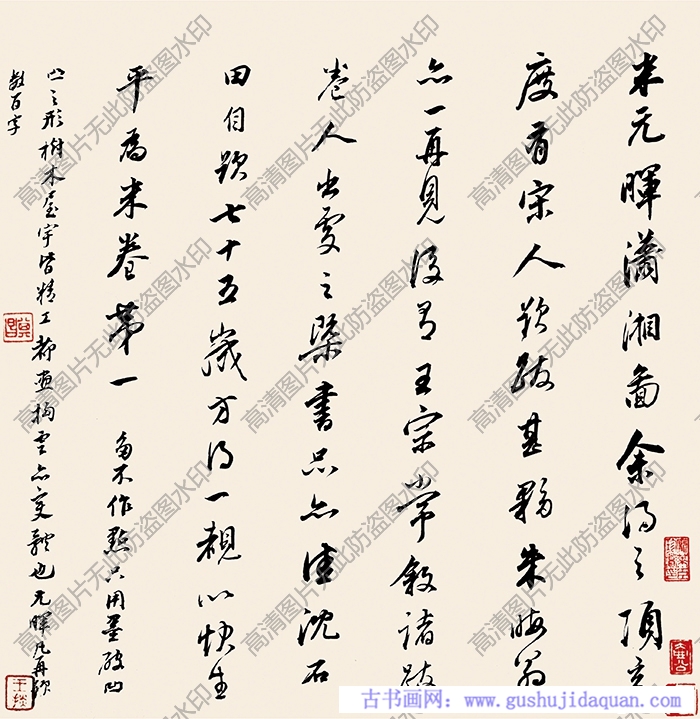 米元暉瀟湘圖余得之項玄
度有宋人題跋甚夥朱晦翁
亦一再見後有王宗常敘諸跋
卷人出處之槩書品亦佳沈石
田自題七十五歲方得一覩以快生
平為米卷第一 畬不作點只用墨破凹
凸之形樹木屋宇皆精工雲亦变體也元暉凡再題
數百字
高清图片无此防盗图水印
古书画网：www.gushujidaquan.com